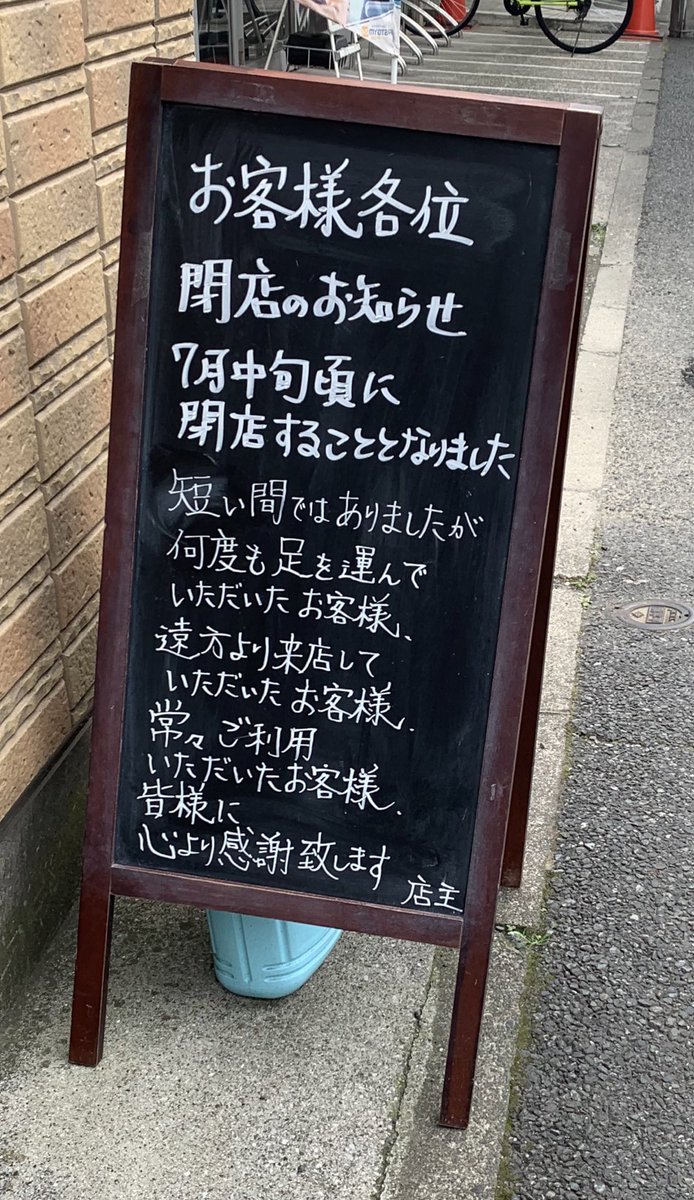 お客様各位
閉店のお知らせ
7月中旬頃に
閉店することとなりました
短い間ではありましたが
何度も足を運んで
いただいたお客様、
遠方より来店して
いただいたお客様、
常々ご利用
いただいたお客様、
皆様に
心より感謝致します
店主